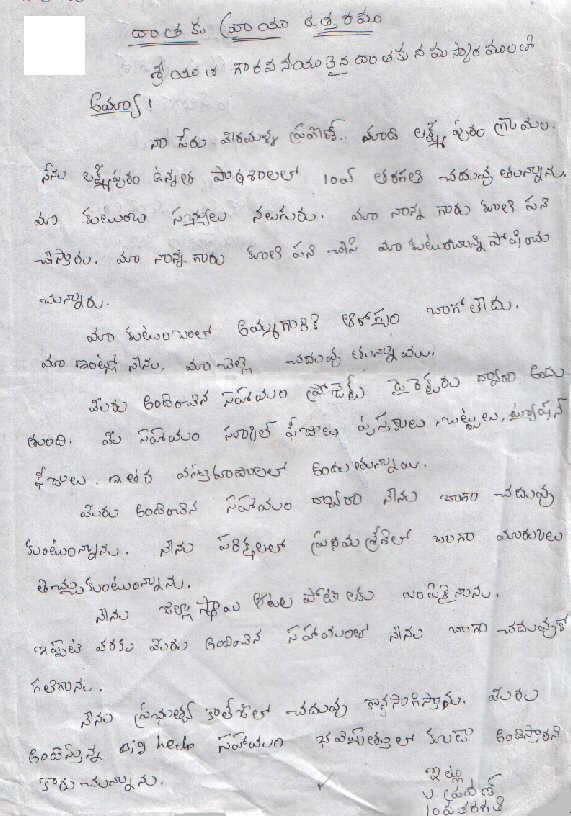 దాతకు వ్రాయు ఉత్తరము
శ్రీయుత గౌరవనీయులైన దాతకు నమస్కారములతో
అయ్యా!
నా పేరు ప్రవీణ్. మాది లక్ష్మీపురం గ్రామం.
నేను లక్ష్మీపురం ఉన్నత పాఠశాలలో 10వ తరగతి చదువుతున్నాను.
మా కుటుంబ సభ్యులు నలుగురు. మా నాన్న గారు కూలి పని
చేస్తారు. మా నాన్న గారు కూలి పని చేసి మా కుటుంబాన్ని పోషించు
చున్నారు.
మా కుటుంబంలో అమ్మగారికి ఆరోగ్యం బాగోలేదు.
మా ఇంట్లో నేను, మా చెల్లి చదువుతున్నాము.
మీరు అందించిన సహాయం ప్రోజెక్ట్ డైరెక్టరు ద్వారా అందు
తుంది. మీ సహాయం స్కూల్ ఫీజులు, పుస్తకాలు, బట్టలు, ట్యూషన్
ఫీజులు, ఇతర వస్తురూపాలలో అందుతున్నాయి.
మీరు అందించిన సహాయం ద్వారా నేను బాగా చదువు
కుంటున్నాను. నేను పరీక్షలలో ప్రథమ శ్రేణిలో బాగా మార్కులు
తెచ్చుకుంటున్నాను.
నేను జిల్లా స్థాయి ఆటల పోటీలకు ఎంపికైనాను.
ఇప్పటి వరకు మీరు అందించిన సహాయంతో నేను బాగా చదువుకో
గలిగాను.
నేను ప్రభుత్వ కాలేజీలో చదువు కొనసాగిస్తాను. మీరు
అందిస్తున్న సహాయం భవిష్యత్తులో కూడా అందిస్తారని
కోరుచున్నాను.
ఇట్లు
ప్రవీణ్
10వ తరగతి